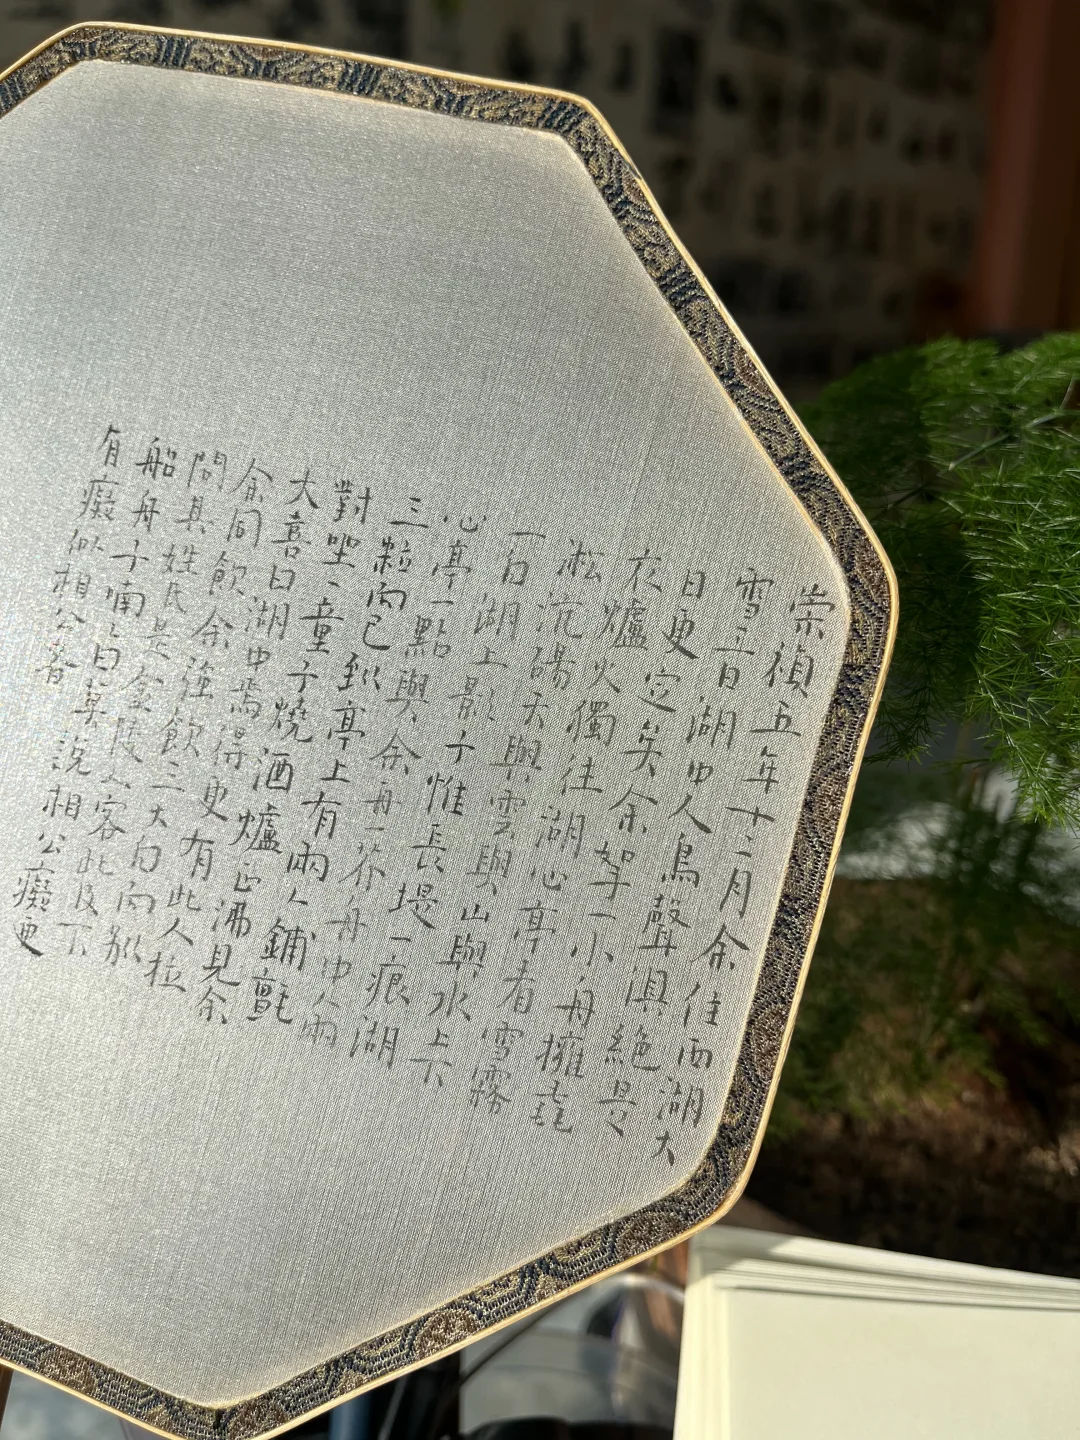 崇禎五年十二月余住西湖大
雪三日湖中人鳥聲俱絕是
日更定矣余拏一小舟擁毳
衣爐火獨往湖心亭看雪霧
淞沆碭天與雲與山與水上下
一白湖上影子惟長堤一痕湖
心亭一點與余舟一芥舟中人兩
三粒而已到亭上有兩人鋪氈
對坐一童子燒酒爐正沸見余
大喜曰湖中焉得更有此人拉
余同飲余強飲三大白而別
問其姓氏是金陵人客此及下
船舟子喃〻曰莫說相公癡更
有癡似相公者